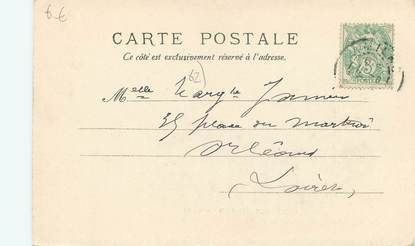 6 €
CARTE POSTALE
Ce côté est exclusivement réservé à l'adresse.
62
Melle
place du Martroi
Orléans
Loiret